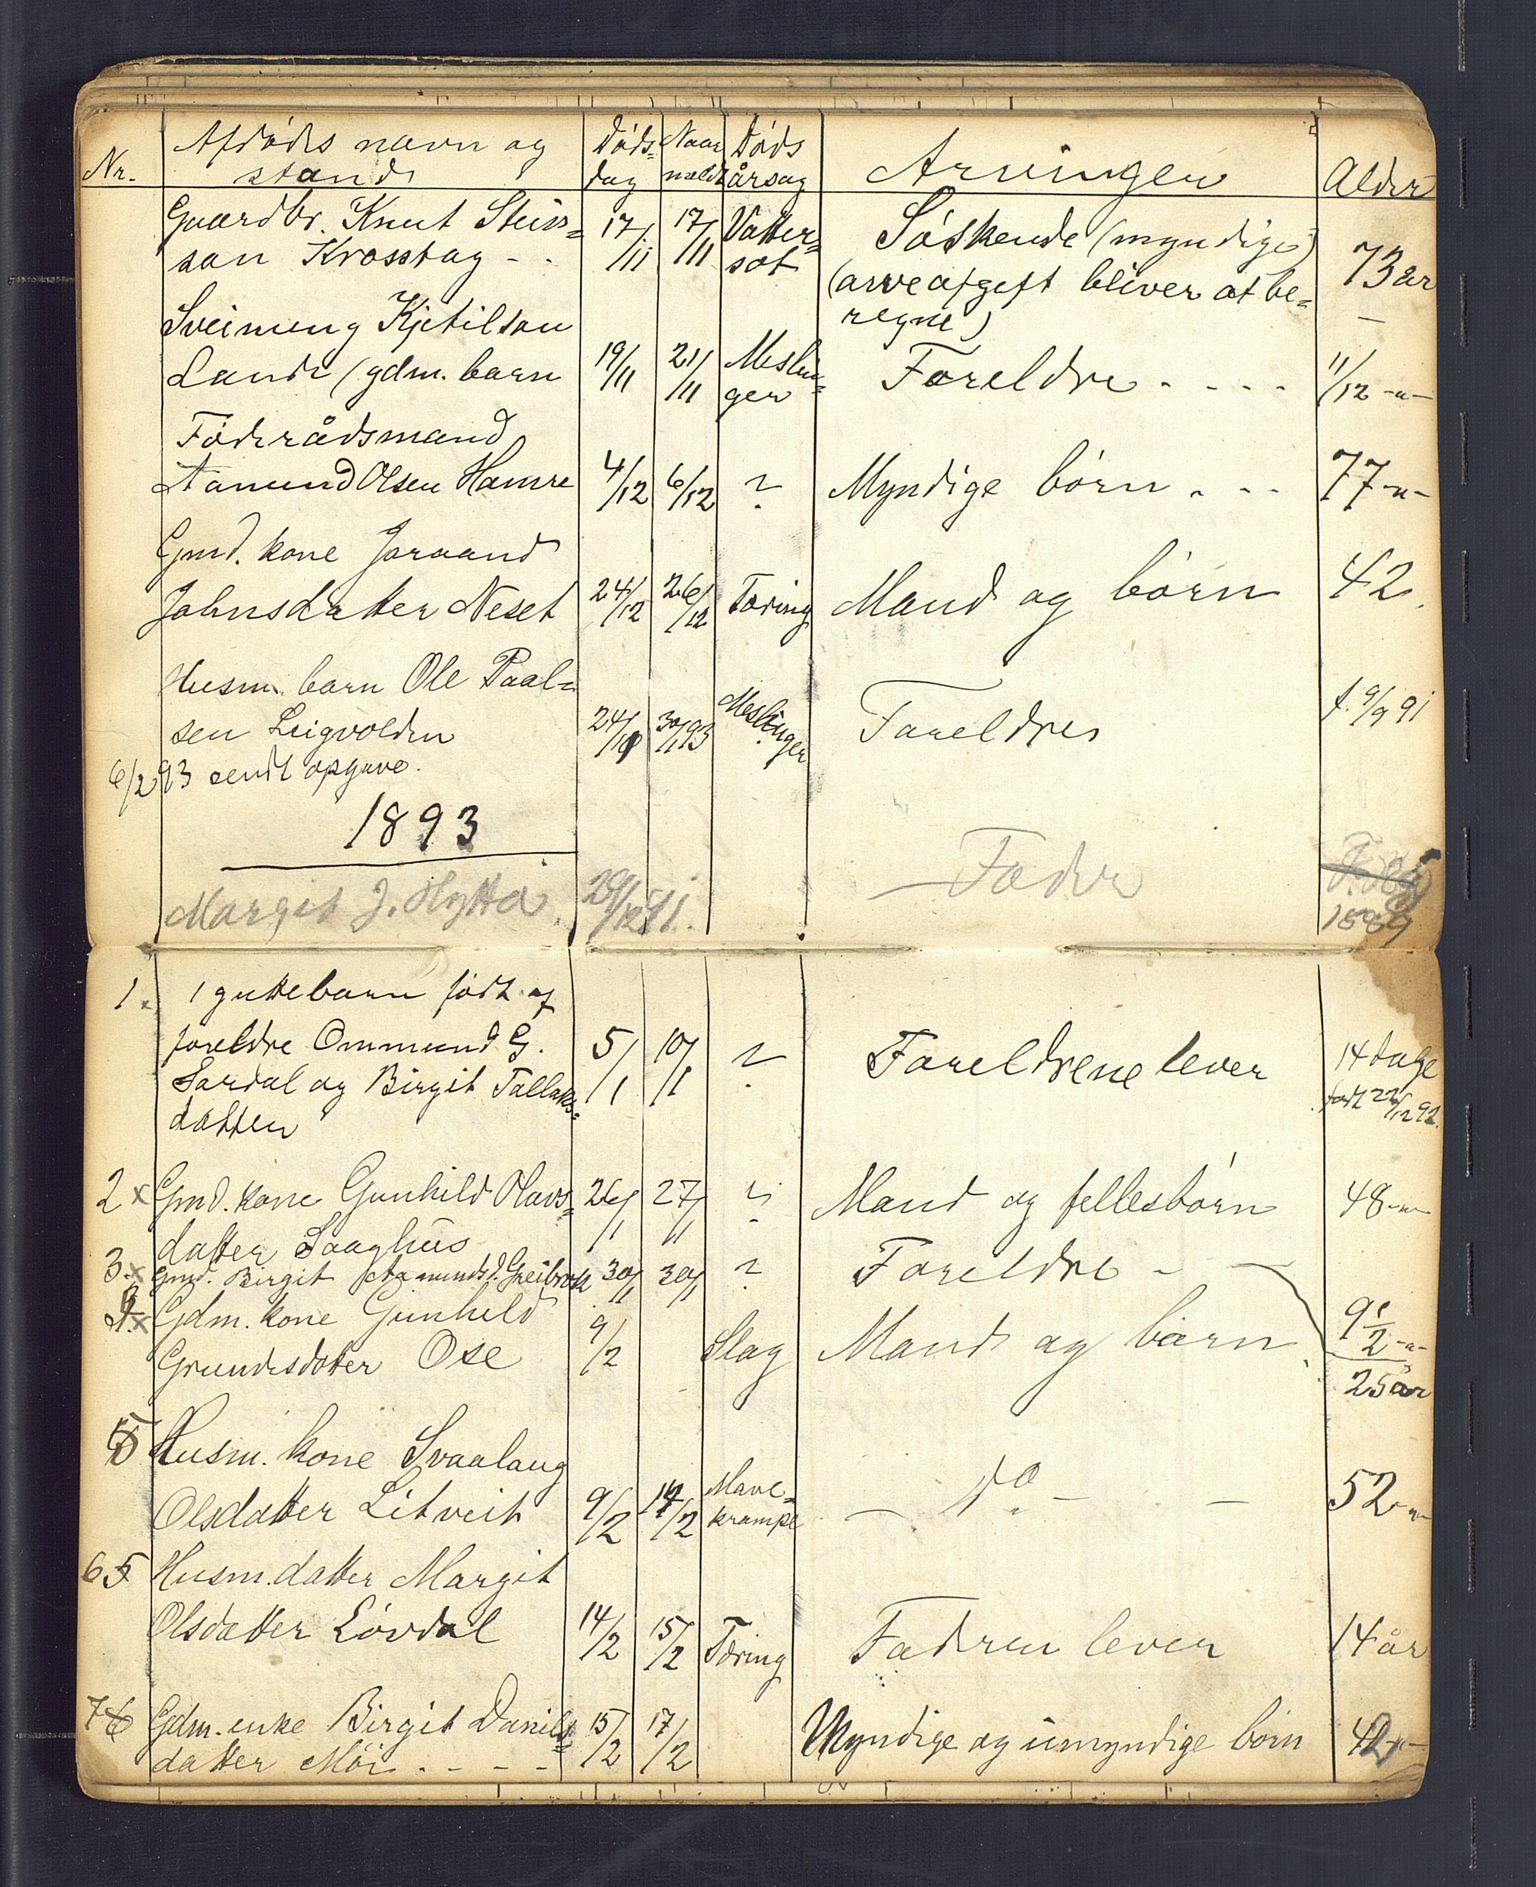 Nr. Afdødes navn og stand Døds-dag Naar meldt Døds årsag Arvinger Alder
Gaardbr. Knut Steins= 17/11 17/11 Vatter= Søskende (myndige)
son Krosstag - - sot (arveafgift bliver at be= 73 år
regne)
Sveinung Kjetilson
Lande (gdm. barn 19/11 21/11 Meslin=ger Foreldre - - - - 11/12 -"-
Føderådsmand
Aanund Olsen Hamre 4/12 6/12 ? Myndige børn - - - 77 -"-
Gmd. kone Joraand
Johnsdatter Neset 24/12 26/12 Tæring Mand og børn 42.
Husm. barn Ole Paal=
sen Leigvolden 24/10 30/1 93 Meslinger Foreldre f. 9/9 91
6/2 93 sendt opgave.
1893
Margit J. Hytta. 29/12 91. Fader 1889
1. 1 guttebarn født af
foreldre Ommund G. 5/1 10/1 ? Foreldrene lever 14 dage
Sordal og Birgit Tallaks= født 22/12 92.
datter
2 x Gmd. kone Gunhild Olavs= 26/1 27/1 ? Mand og fellesbørn 48 -"-
datter Saaghus
3. x Gmd. Birgit Aamunds d. Greibrok 30/1 30/1 ? Foreldre - -
4. x Gdm. kone Gunhild 9/2 Slag Mand og børn. 9 1/2 -"-
Grundesdatter Ose 25 år
5 Husm. kone Svaalaug
Olsdatter Litveit 9/2 14/2 Mave=krampe - do - - 52 -"-
6 5 Husm. datter Margit
Olsdatter Løvdal 14/2 15/2 Tæring Fadren lever 14 år
7 6 Gdm. enke Birgit Daniels= 15/2 17/2 Myndige og umyndige børn 42 -"-
datter Møi - - - -